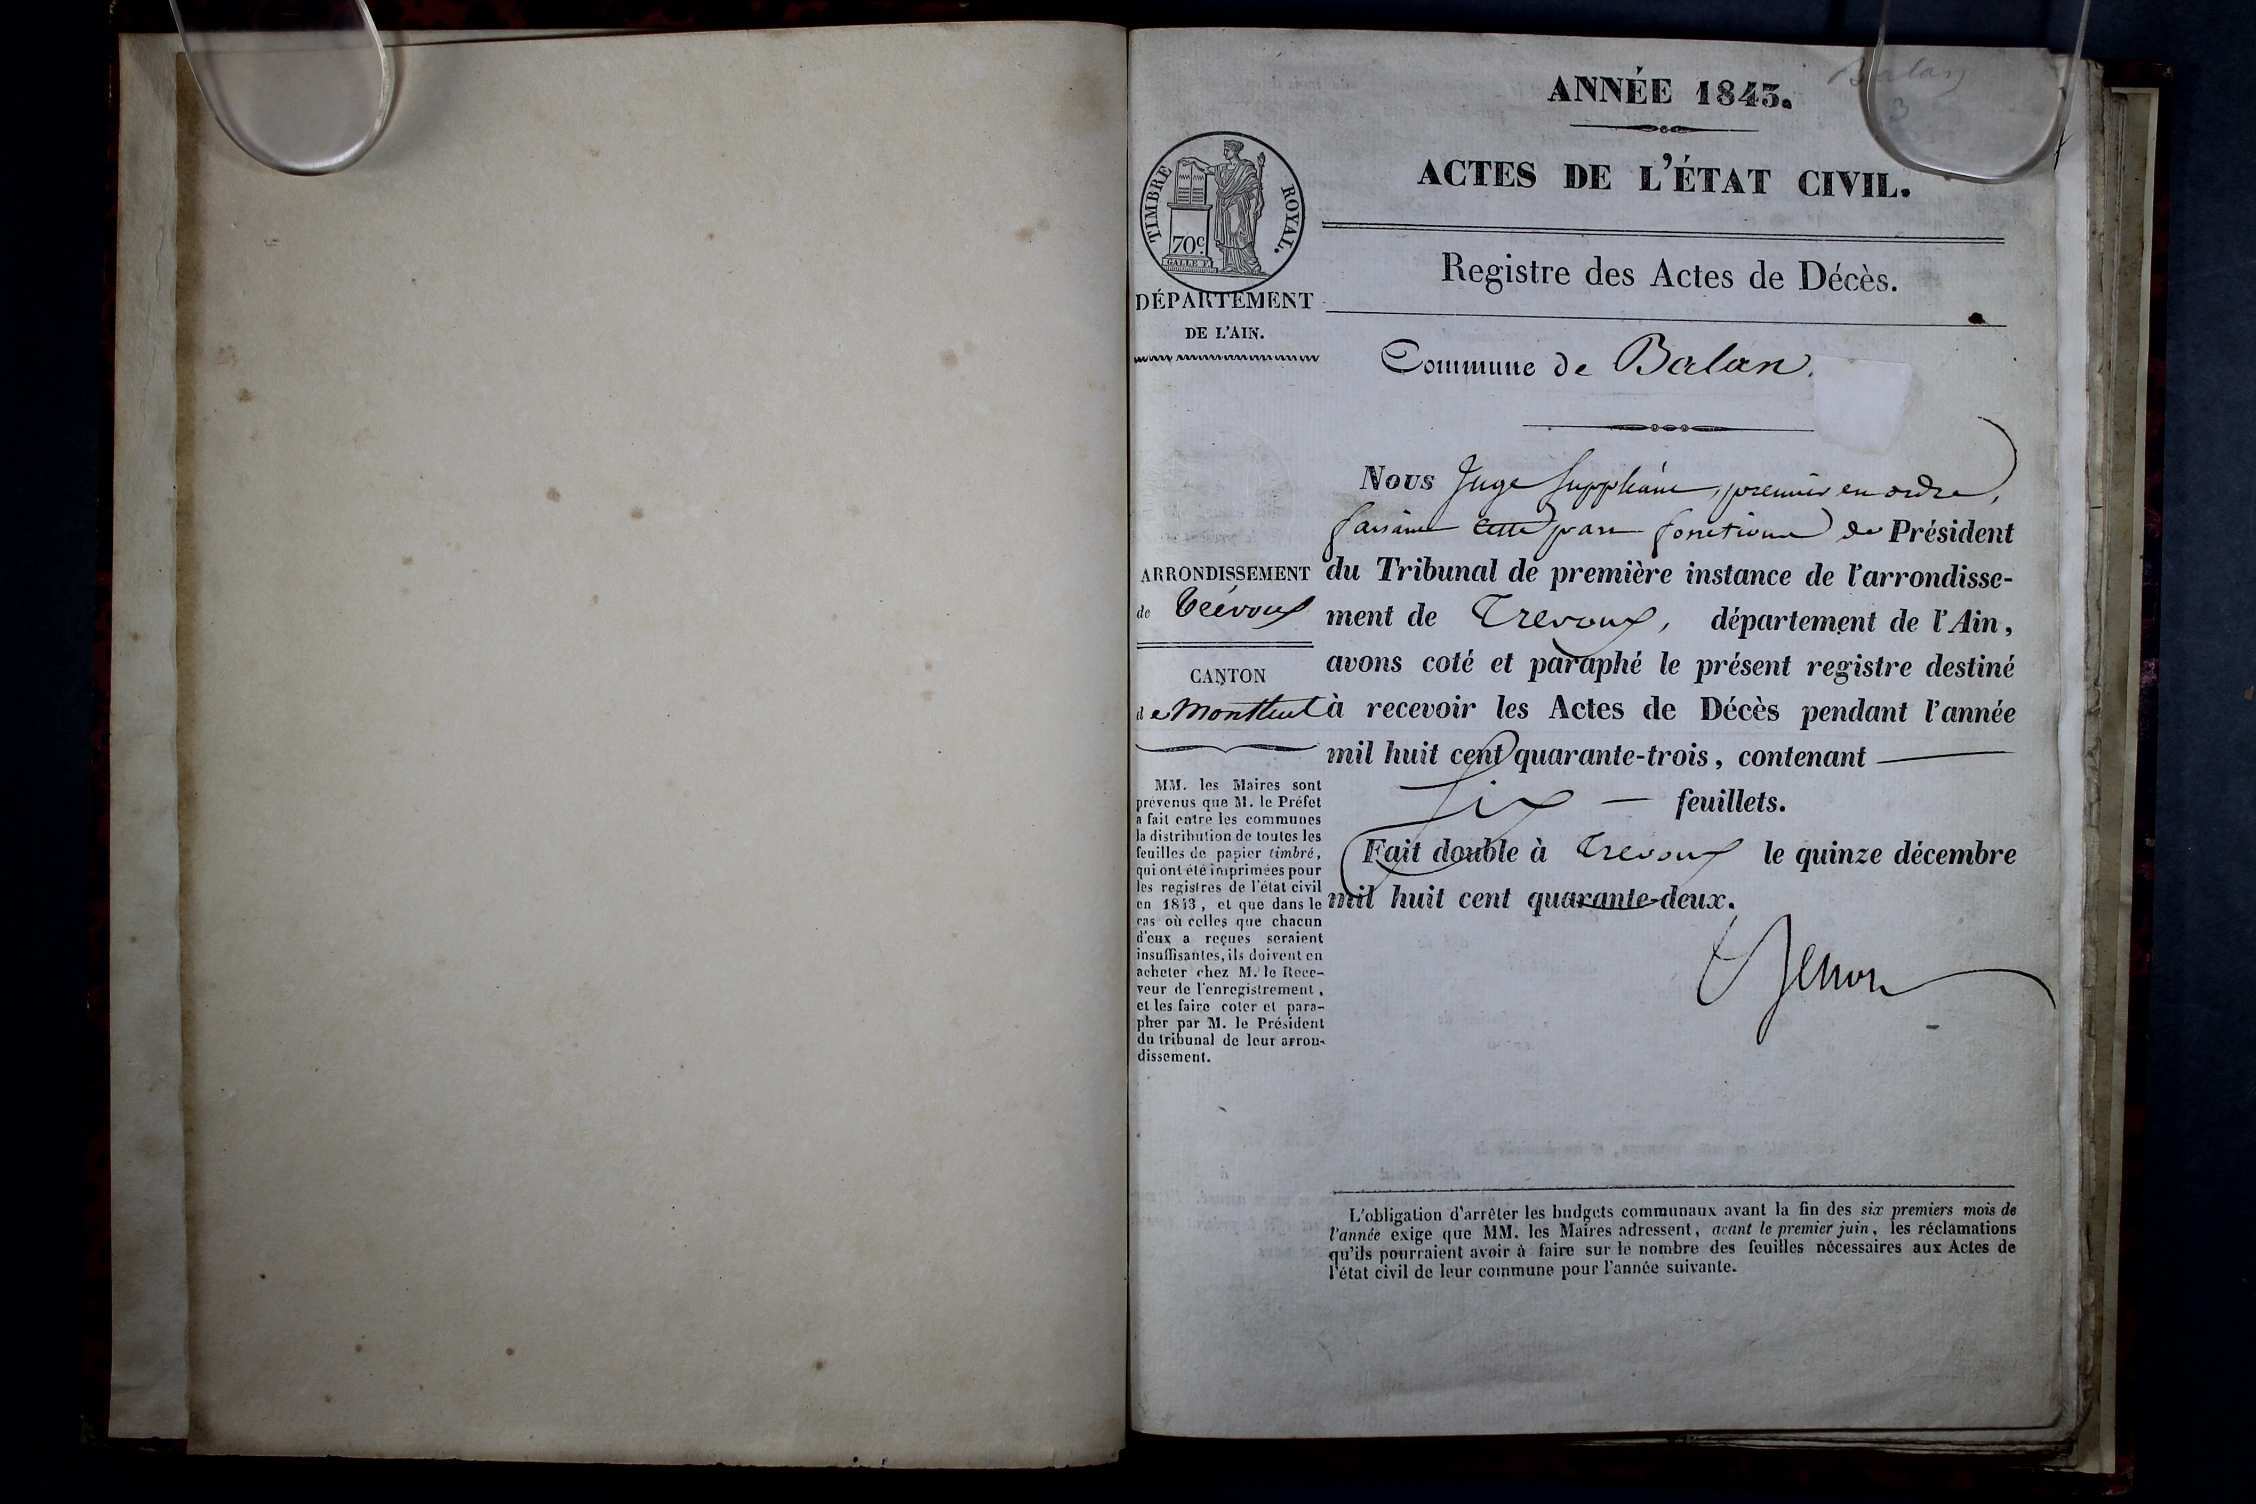 Balan
3
ANNÉE 1843.
ACTES DE L'ÉTAT CIVIL.
Registre des Actes de Décès.
Commune de Balan.
TIMBRE ROYAL.
70c.
GALLE F.
DÉPARTEMENT
DE L'AIN.
ARRONDISSEMENT
de Trévoux
CANTON
de Montluel
MM. les Maires sont
prévenus que M. le Préfet
a fait entre les communes
la distribution de toutes les
feuilles de papier timbré,
qui ont été imprimées pour
les registres de l'état civil
en 1843, et que dans le
cas où celles que chacun
d'eux a reçues seraient
insuffisantes, ils doivent en
acheter chez M. le Rece-
veur de l'enregistrement,
et les faire coter et para-
pher par M. le Président
du tribunal de leur arron-
dissement.
Nous Juge Suppléant, premier en ordre,
faisant cette part fonctions de Président
du Tribunal de première instance de l'arrondisse-
ment de Trevoux, département de l'Ain,
avons coté et paraphé le présent registre destiné
à recevoir les Actes de Décès pendant l'année
mil huit cent quarante-trois, contenant
Six — feuillets.
Fait double à Trevoux le quinze décembre
mil huit cent quarante-deux.
L'obligation d'arrêter les budgets communaux avant la fin des six premiers mois de
l'année exige que MM. les Maires adressent, avant le premier juin, les réclamations
qu'ils pourraient avoir à faire sur le nombre des feuilles nécessaires aux Actes de
l'état civil de leur commune pour l'année suivante.